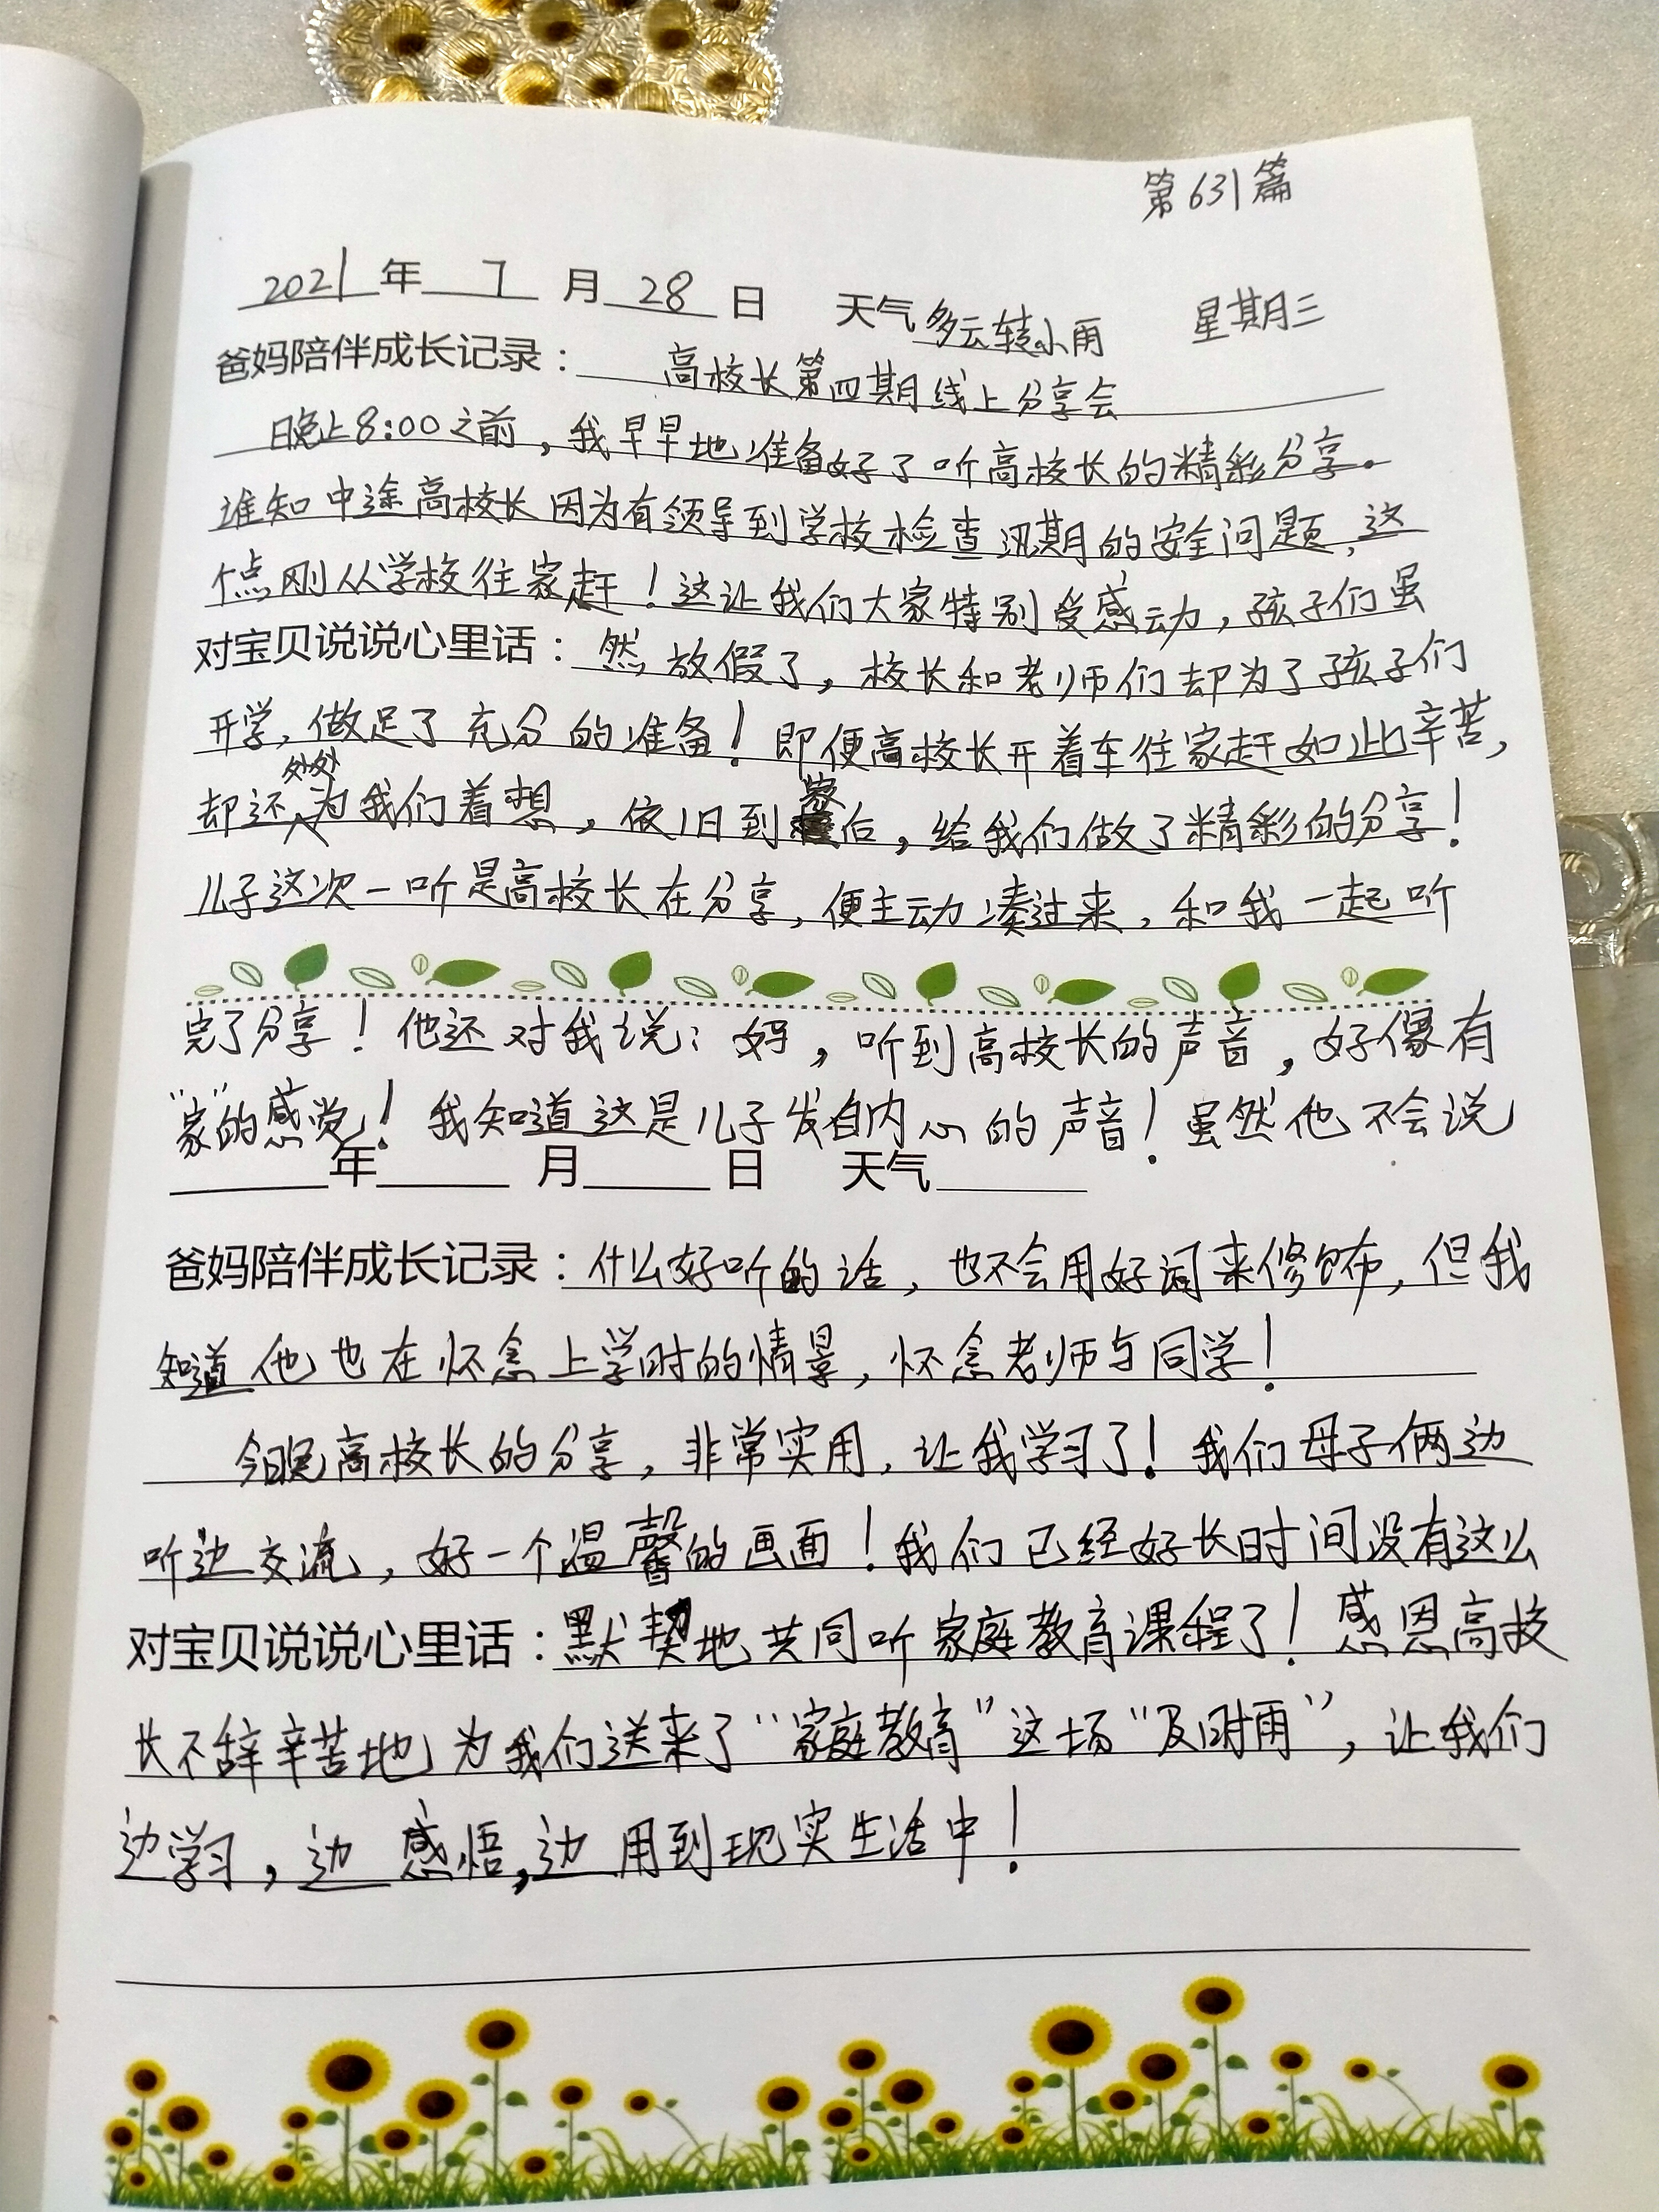 第631篇
2021年 7 月 28 日 天气多云转小雨 星期三
爸妈陪伴成长记录： 高校长第四期线上分享会
晚上8:00之前，我早早地准备好了听高校长的精彩分享。
谁知中途高校长因为有领导到学校检查汛期的安全问题，这
个点刚从学校往家赶！这让我们大家特别受感动，孩子们虽
对宝贝说说心里话：然放假了，校长和老师们却为了孩子们
开学，做足了充分的准备！即便高校长开着车往家赶如此辛苦，
却还处处为我们着想，依旧到家后，给我们做了精彩的分享！
儿子这次一听是高校长在分享，便主动凑过来，和我一起听
完了分享！他还对我说：妈，听到高校长的声音，好像有
“家”的感觉！我知道这是儿子发自内心的声音！虽然他不会说
年 月 日 天气
爸妈陪伴成长记录：什么好听的话，也不会用好词来修饰，但我
知道他也在怀念上学时的情景，怀念老师与同学！
今晚高校长的分享，非常实用，让我学习了！我们母子俩边
听边交流，好一个温馨的画面！我们已经好长时间没有这么
对宝贝说说心里话：默契地共同听家庭教育课程了！感恩高校
长不辞辛苦地为我们送来了“家庭教育”这场“及时雨”，让我们
边学习，边感悟，边用到现实生活中！